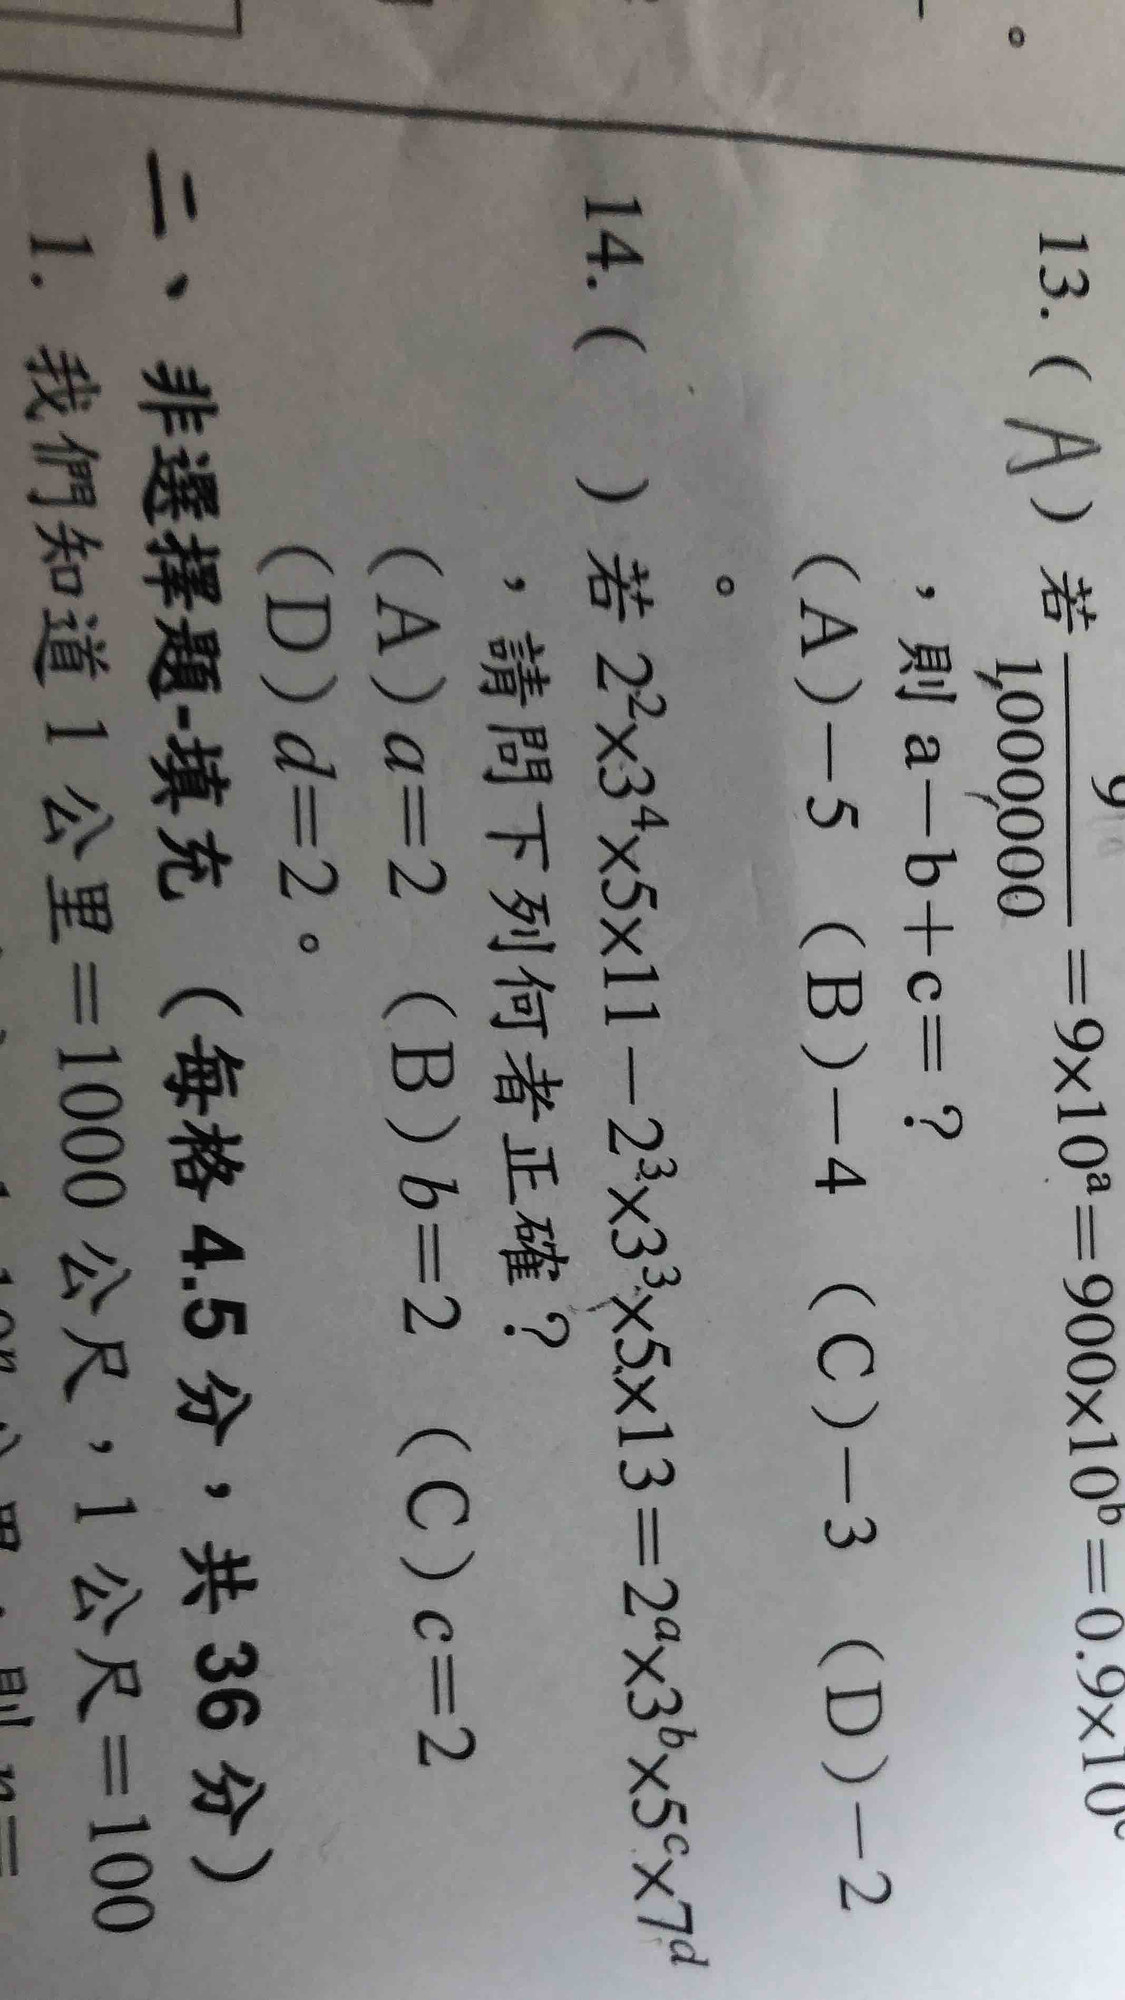 13.( A ) 若 9/1,000,000 =9×10ᵃ=900×10ᵇ=0.9×10ᶜ
，則 a－b+c=？
(A)－5 (B)－4 (C)－3 (D)－2
。
14.( ) 若 2²×3⁴×5×11－2³×3³×5×13=2ᵃ×3ᵇ×5ᶜ×7ᵈ
，請問下列何者正確？
(A)a=2 (B)b=2 (C)c=2
(D)d=2。
二、非選擇題-填充 (每格 4.5 分，共 36 分)
1. 我們知道 1 公里=1000 公尺，1 公尺=100